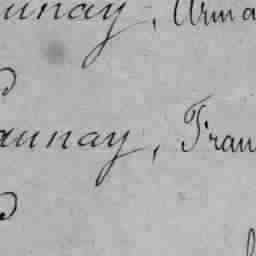 unay, Arma
aunay, Fran